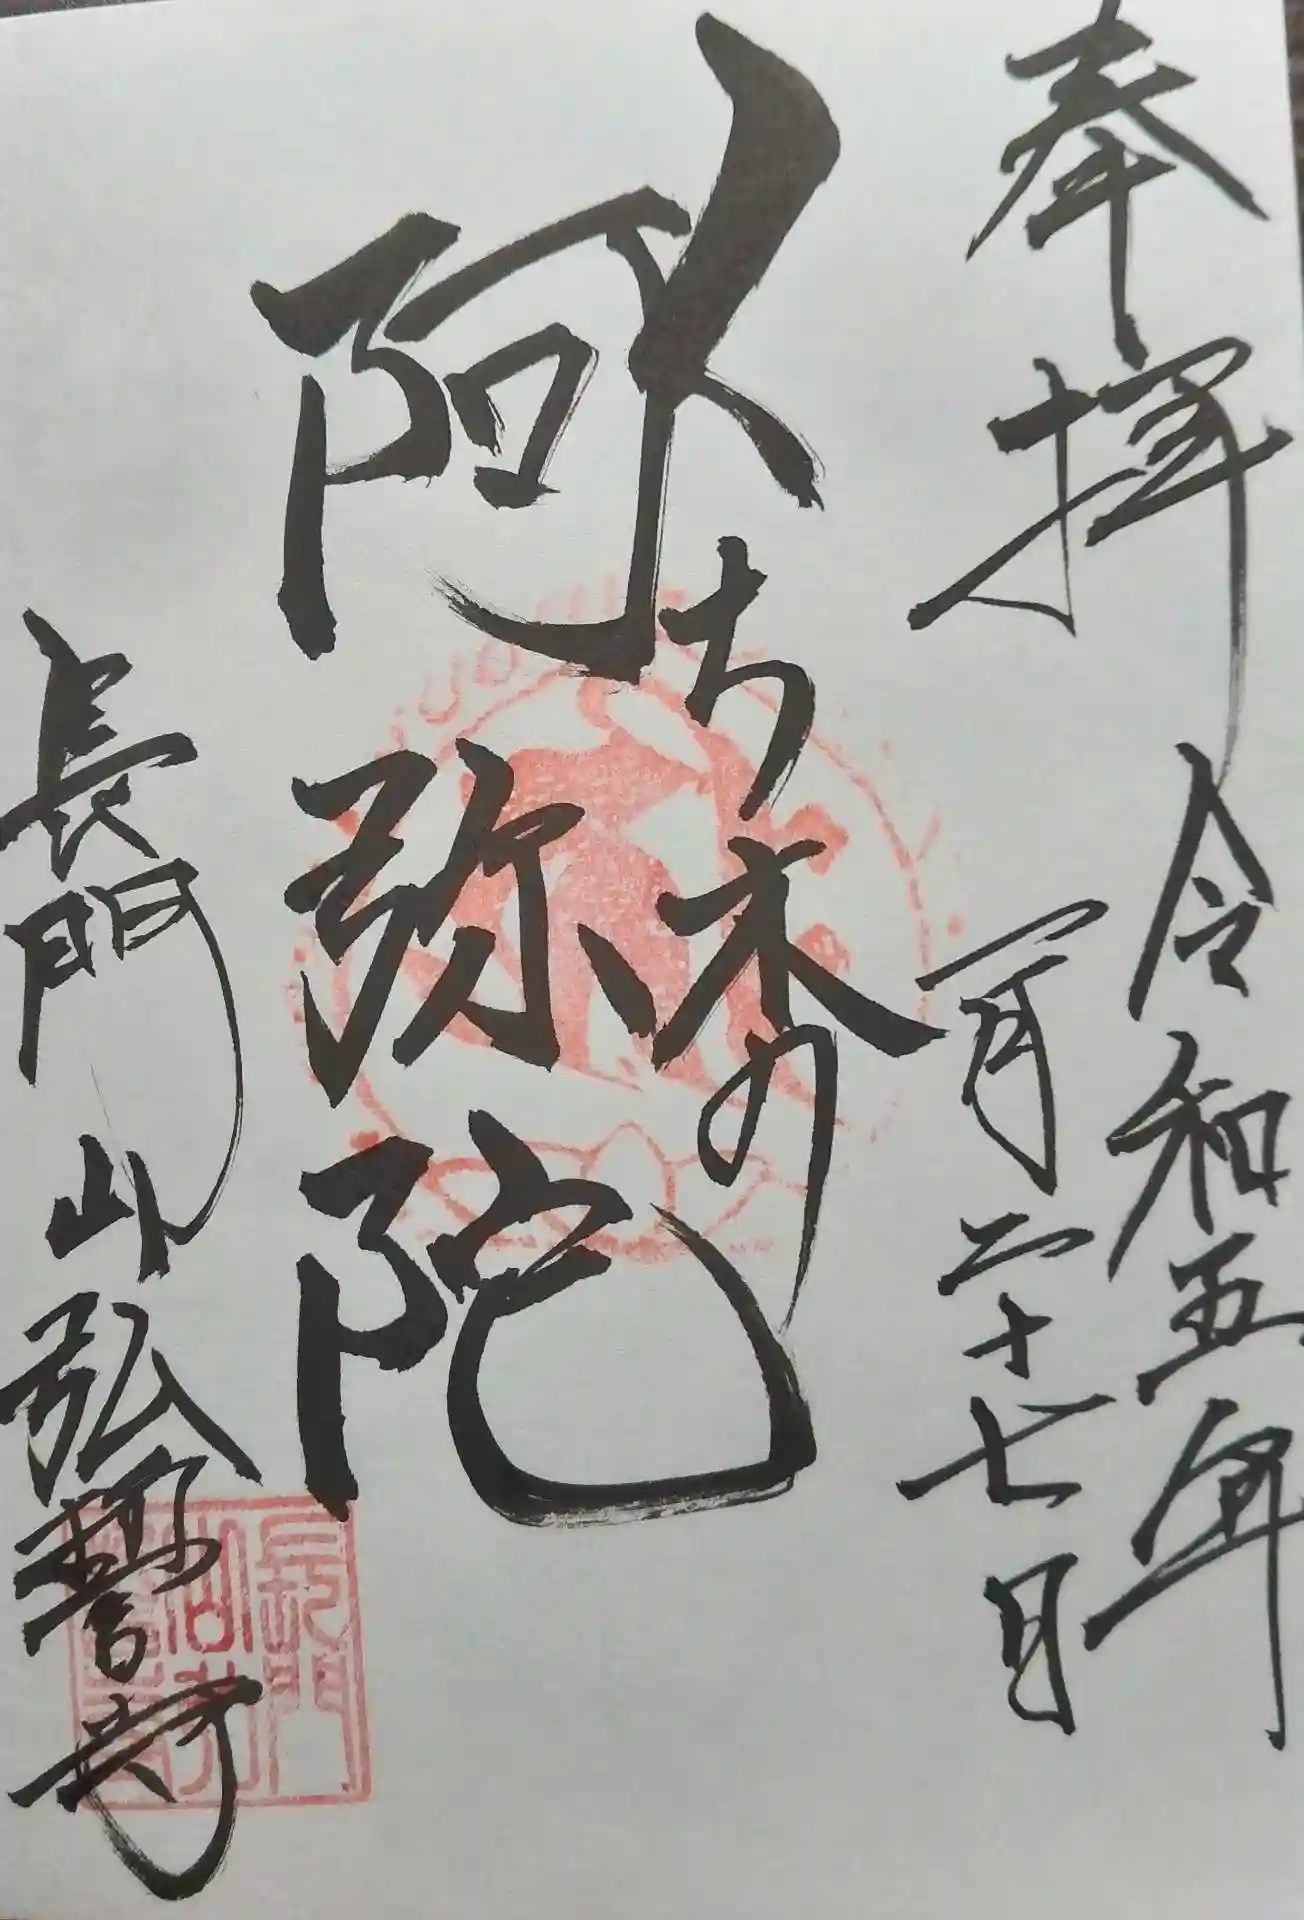 奉拝
令和五年
一月二十七日
くち木の
阿弥陀
長門山弘誓寺